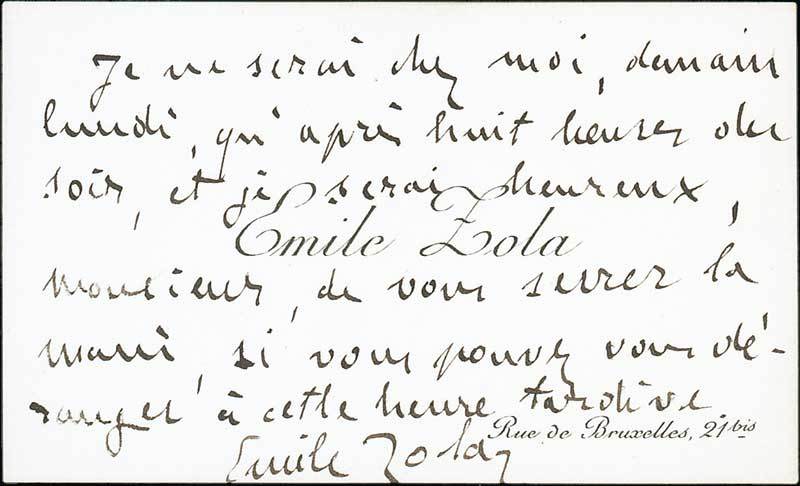 Je ne serai chez moi, demain
lundi, qu'après huit heures du
soir, et je serai heureux,
Emile Zola
monsieur, de vous serrer la
main, si vous pouvez vous dé-
ranger à cette heure tardive.
Rue de Bruxelles, 21bis
Emile Zola